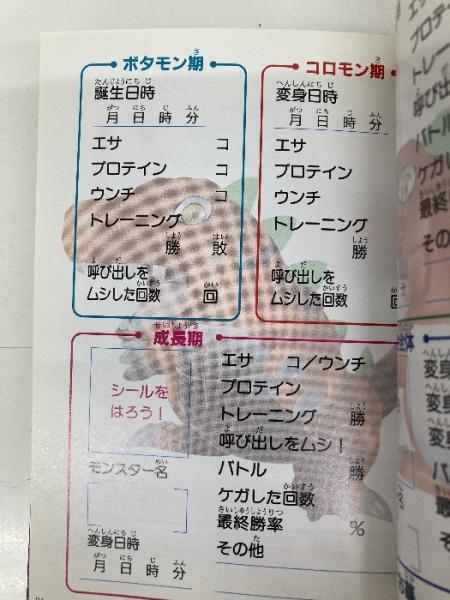 ボタモン期
誕生日時
月 日 時 分
エサ コ
プロテイン コ
ウンチ コ
トレーニング
勝 敗
呼び出しを
ムシした回数 回
コロモン期
変身日時
月 日 時 分
エサ
プロテイン
ウンチ
トレーニング
勝
呼び出しを
ムシした回数
成長期
シールを
はろう！
モンスター名
変身日時
月 日 時 分
エサ コ/ウンチ
プロテイン
トレーニング 勝
呼び出しをムシ！
バトル 勝
ケガした回数
最終勝率 %
その他
エサ
プロテイ
トレーニ
呼び出
バトル
ケガし
最終
その